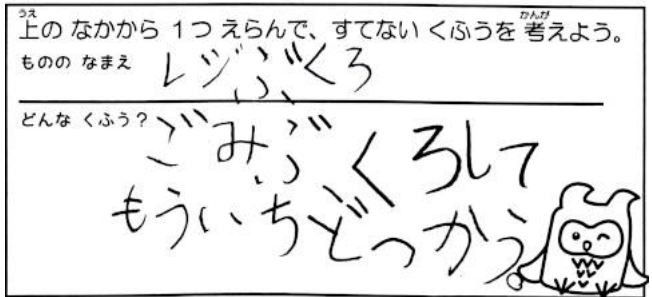 上の なかから 1つ えらんで、すてない くふうを 考えよう。
ものの なまえ
レジぶくろ
どんな くふう？
ごみぶくろして
もういちどつかう。